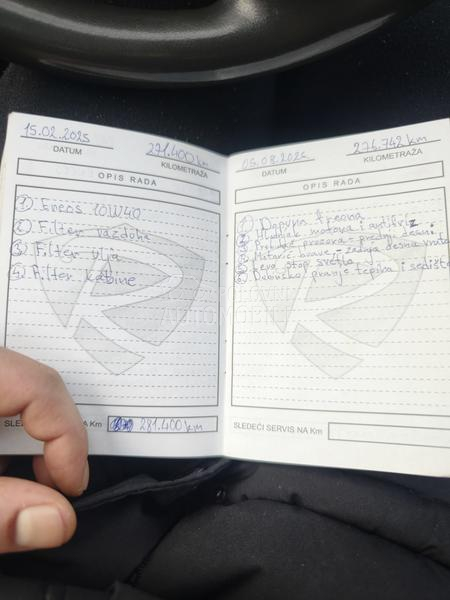 15.02.2025 271.400 km
DATUM KILOMETRAŽA
OPIS RADA
① Eneos 10W40
② Filter vazduha
③ Filter ulja
④ Filter kabine
NA Km 281.400 km
05.08.2025 274.742 km
DATUM KILOMETRAŽA
OPIS RADA
① Dopuna freona
② motora i antifriz
③ prozora - prednji desni
④ brave - zadnja desna vrata
⑤ Leva stop svetla
⑥ Dubinsko pranje tepiha i sedišta
SLEDEĆI SERVIS NA Km